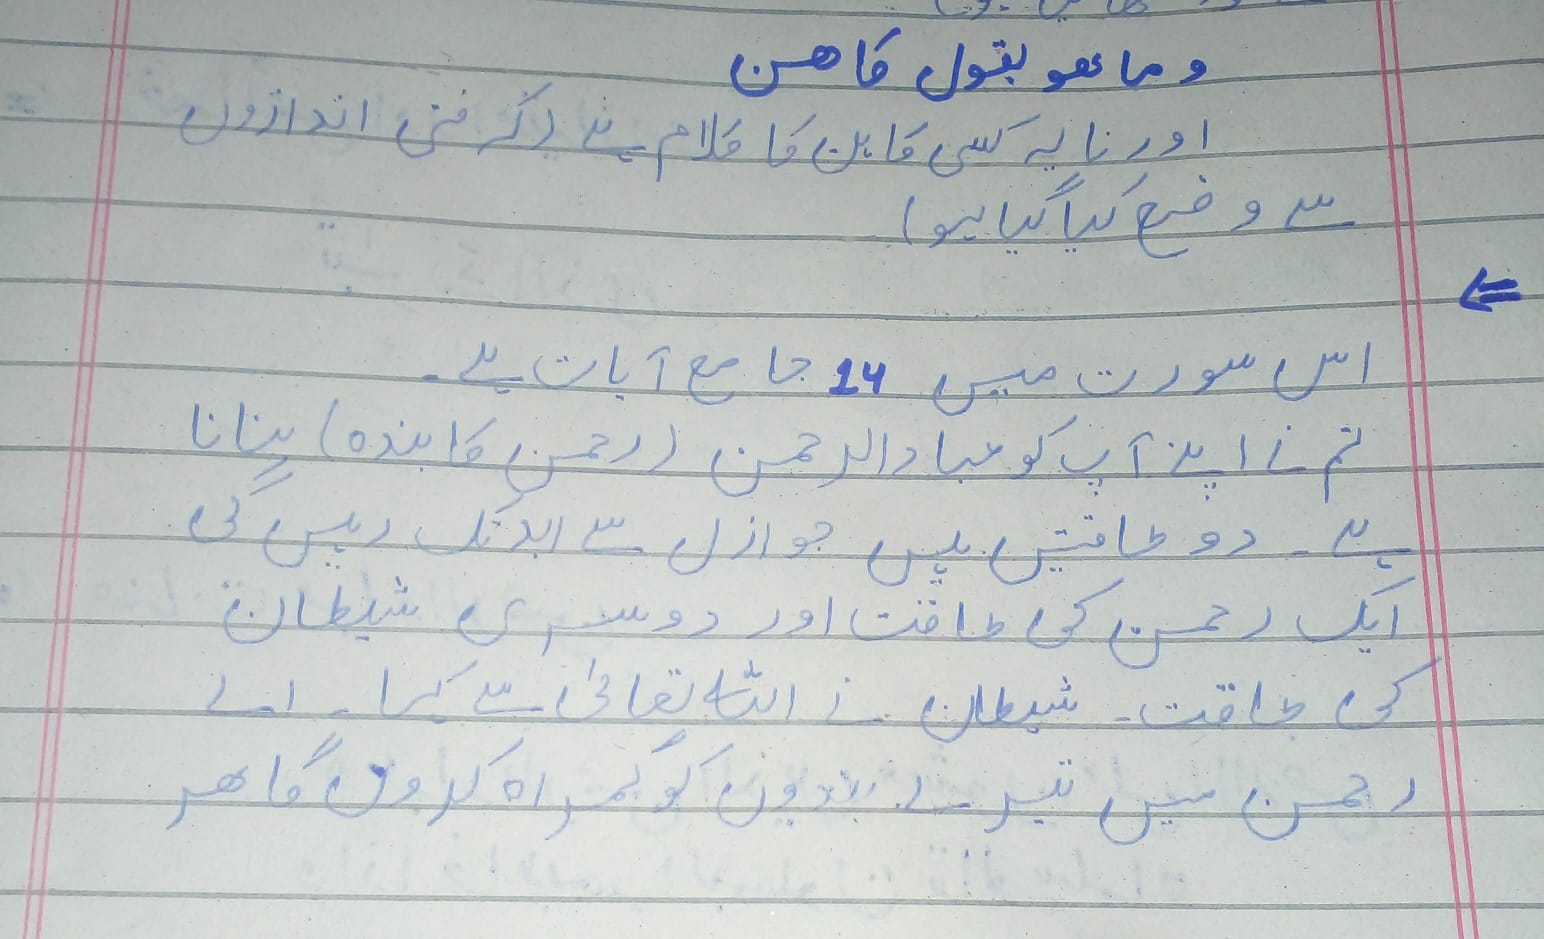 وما هو بقول کاهن
اور نا یہ کسی کاہن کا کلام ہے (کہ فنی اندازوں
سے وضع کیا گیا ہو)
⇐
اس سورت میں 14 جامع آیات ہے۔
تم نے اپنے آپ کو عباد الرحمن (رحمن کا بندہ) بنانا
ہے۔ دو طاقتیں ہیں جو ازل سے ابد تک رہیں گی
ایک رحمن کی طاقت اور دوسری شیطان
کی طاقت۔ شیطان نے اللہ تعالیٰ سے کہا۔ اے
رحمن میں تیرے بندوں کو گمراہ کروں گا ھر